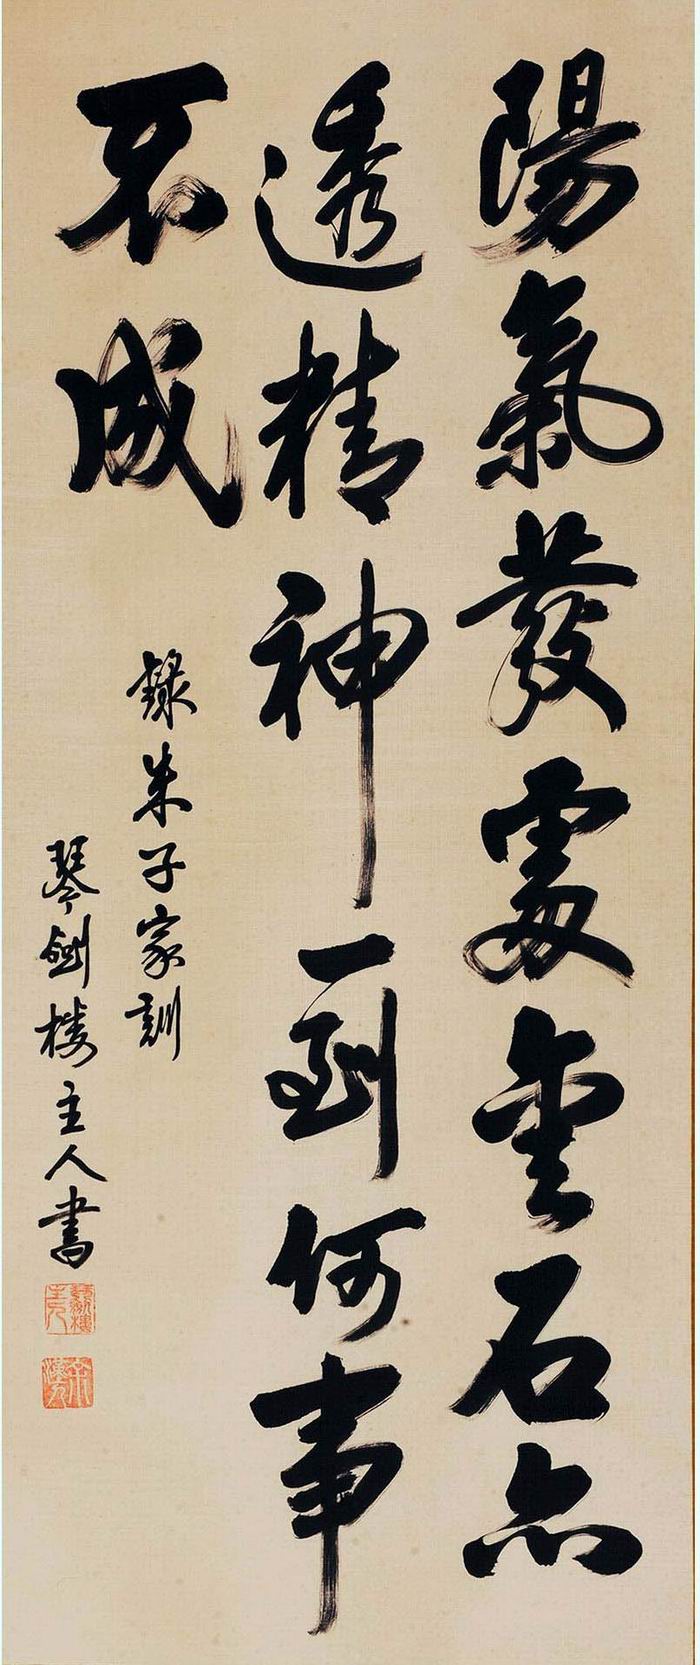 陽氣發處金石亦
透精神一到何事
不成
錄朱子家訓
琴劍樓主人書